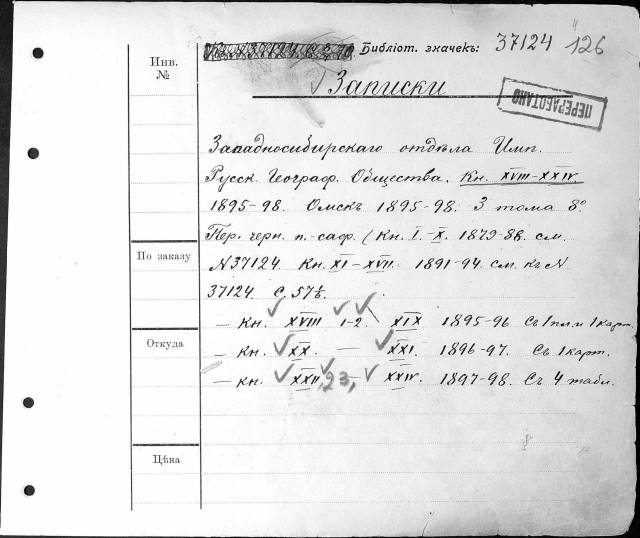 Библіот. значекъ: 37124 126
Инв.
№
Записки
ПЕРЕРАБОТАНО
Западносибирскаго отдѣла Имп.
Русск. Географ. Общества. Кн. XVIII–XXIV.
1895-98. Омскъ 1895-98. 3 тома 8º.
Пер. черн. п.-саф. (Кн. I.–X. 1879-88. см.
По заказу
N37124. Кн. XI–XVII. 1891-94. см. къ N
37124. С. 57½.
– Кн. XVIII 1-2. XIX 1895-96 Съ 1 пл. и 1 карт.
Откуда
– Кн. XX. — XXI. 1896-97. Съ 1 карт.
– Кн. XXII, 23, – XXIV. 1897-98. Съ 4 табл.
Цѣна